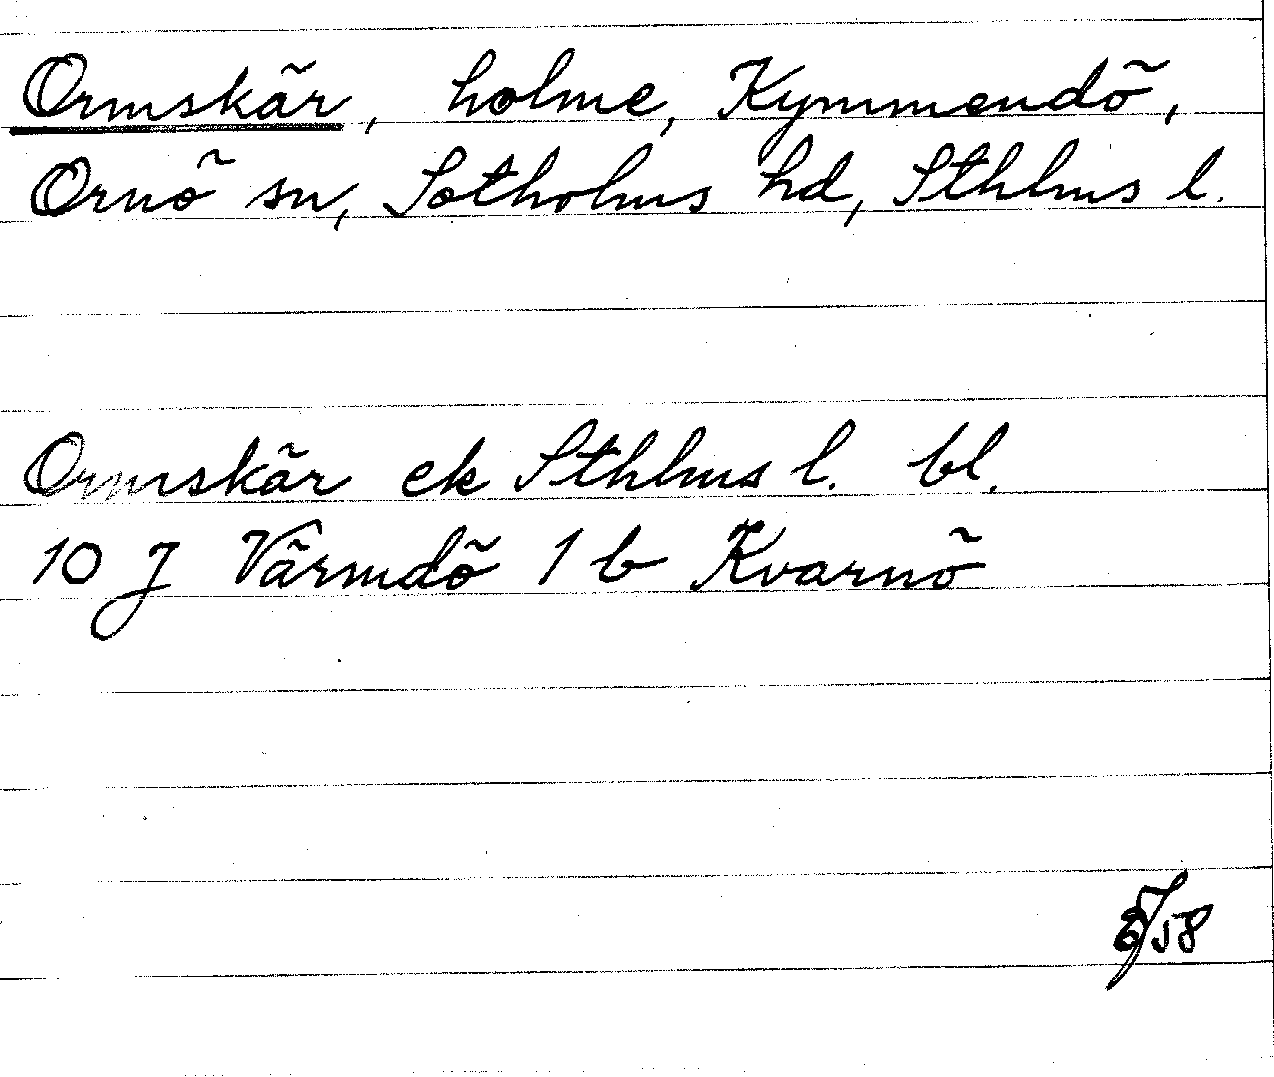 Ormskär, holme, Kymmendö,
Ornö sn, Sotholms hd, Sthlms l.
Ormskär ek Sthlms l. bl.
10 J Värmdö 1 b Kvarnö